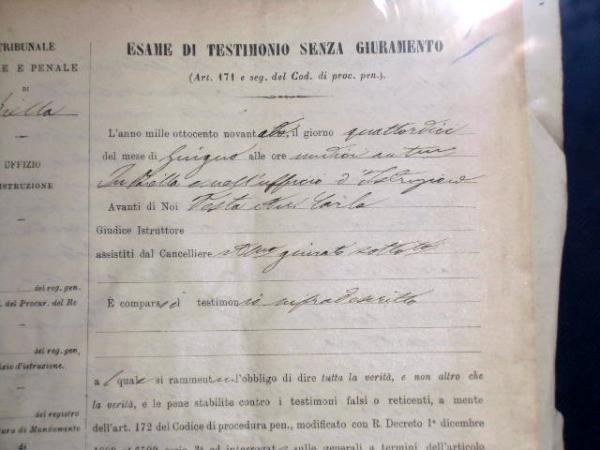 TRIBUNALE
E E PENALE
DI
UFFIZIO
ISTRUZIONE
del reg. gen.
del Procur. del Re
del reg. gen,
d'istruzione.
del registro
tura di Mandamento
di
ESAME DI TESTIMONIO SENZA GIURAMENTO
(Art. 171 e seg. del Cod. di proc. pen.).
L'anno mille ottocento novant il giorno quattordici
del mese di Giugno alle ore
In Biella nell'ufficio d'Istruzione
Avanti di Noi Testa Carlo
Giudice Istruttore
assistiti dal Cancelliere
È comparso il testimonio infradescritto
a l quale si rammenta l'obbligo di dire tutta la verità, e non altro che
la verità, e le pene stabilite contro i testimoni falsi o reticenti, a mente
dell'art. 172 del Codice di procedura pen., modificato con R. Decreto 1° dicembre
sulle generali a termini dell'articolo